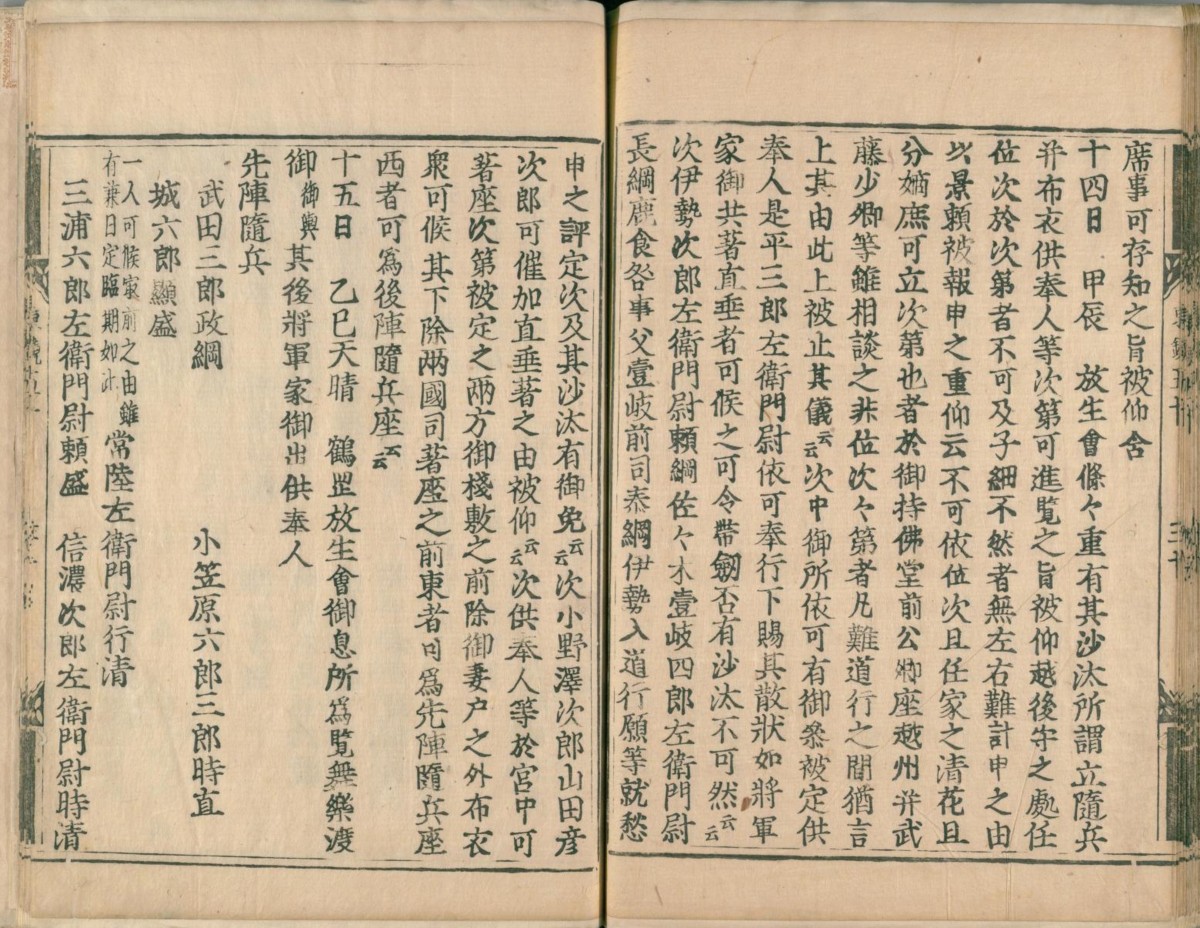 席事可存知之旨被仰含
十四日 甲辰 放生會條々重有其沙汰所謂立隨兵
并布衣供奉人等次第可進覧之旨被仰越後守之處任
位次於次第者不可及子細不然者無左右難計申之由
以景頼被報申之重仰云不可依位次且任家之清花且
分嫡庶可立次第也者於御持佛堂前公卿座越州并武
藤少卿等雖相談之非位次々第者凡難道行之間猶言
上其由此上被止其儀云云次中御所依可有御参被定供
奉人是平三郎左衛門尉依可奉行下賜其散状如將軍
家御共著直垂者可候之可令帶劔否有沙汰不可然云云
次伊勢次郎左衛門尉頼綱佐々木壹岐四郎左衛門尉
長綱鹿食咎事父壹岐前司泰綱伊勢入道行願等就愁
申之評定次及其沙汰有御免云云次小野澤次郎山田彦
次郎可催加直垂著之由被仰云云次供奉人等於宮中可
著座次第被定之兩方御棧敷之前除御妻戸之外布衣
衆可候其下除兩國司著座之前東者可爲先陣隨兵座
西者可爲後陣隨兵座云云
十五日 乙巳天晴 鶴岡放生會御息所爲覧舞樂渡
御御輿其後將軍家御出供奉人
先陣隨兵
武田三郎政綱 小笠原六郎三郎時直
城六郎顯盛
一人可候家前之由雖
有兼日定臨期如此
常陸左衛門尉行清
三浦六郎左衛門尉頼盛 信濃次郎左衛門尉時清